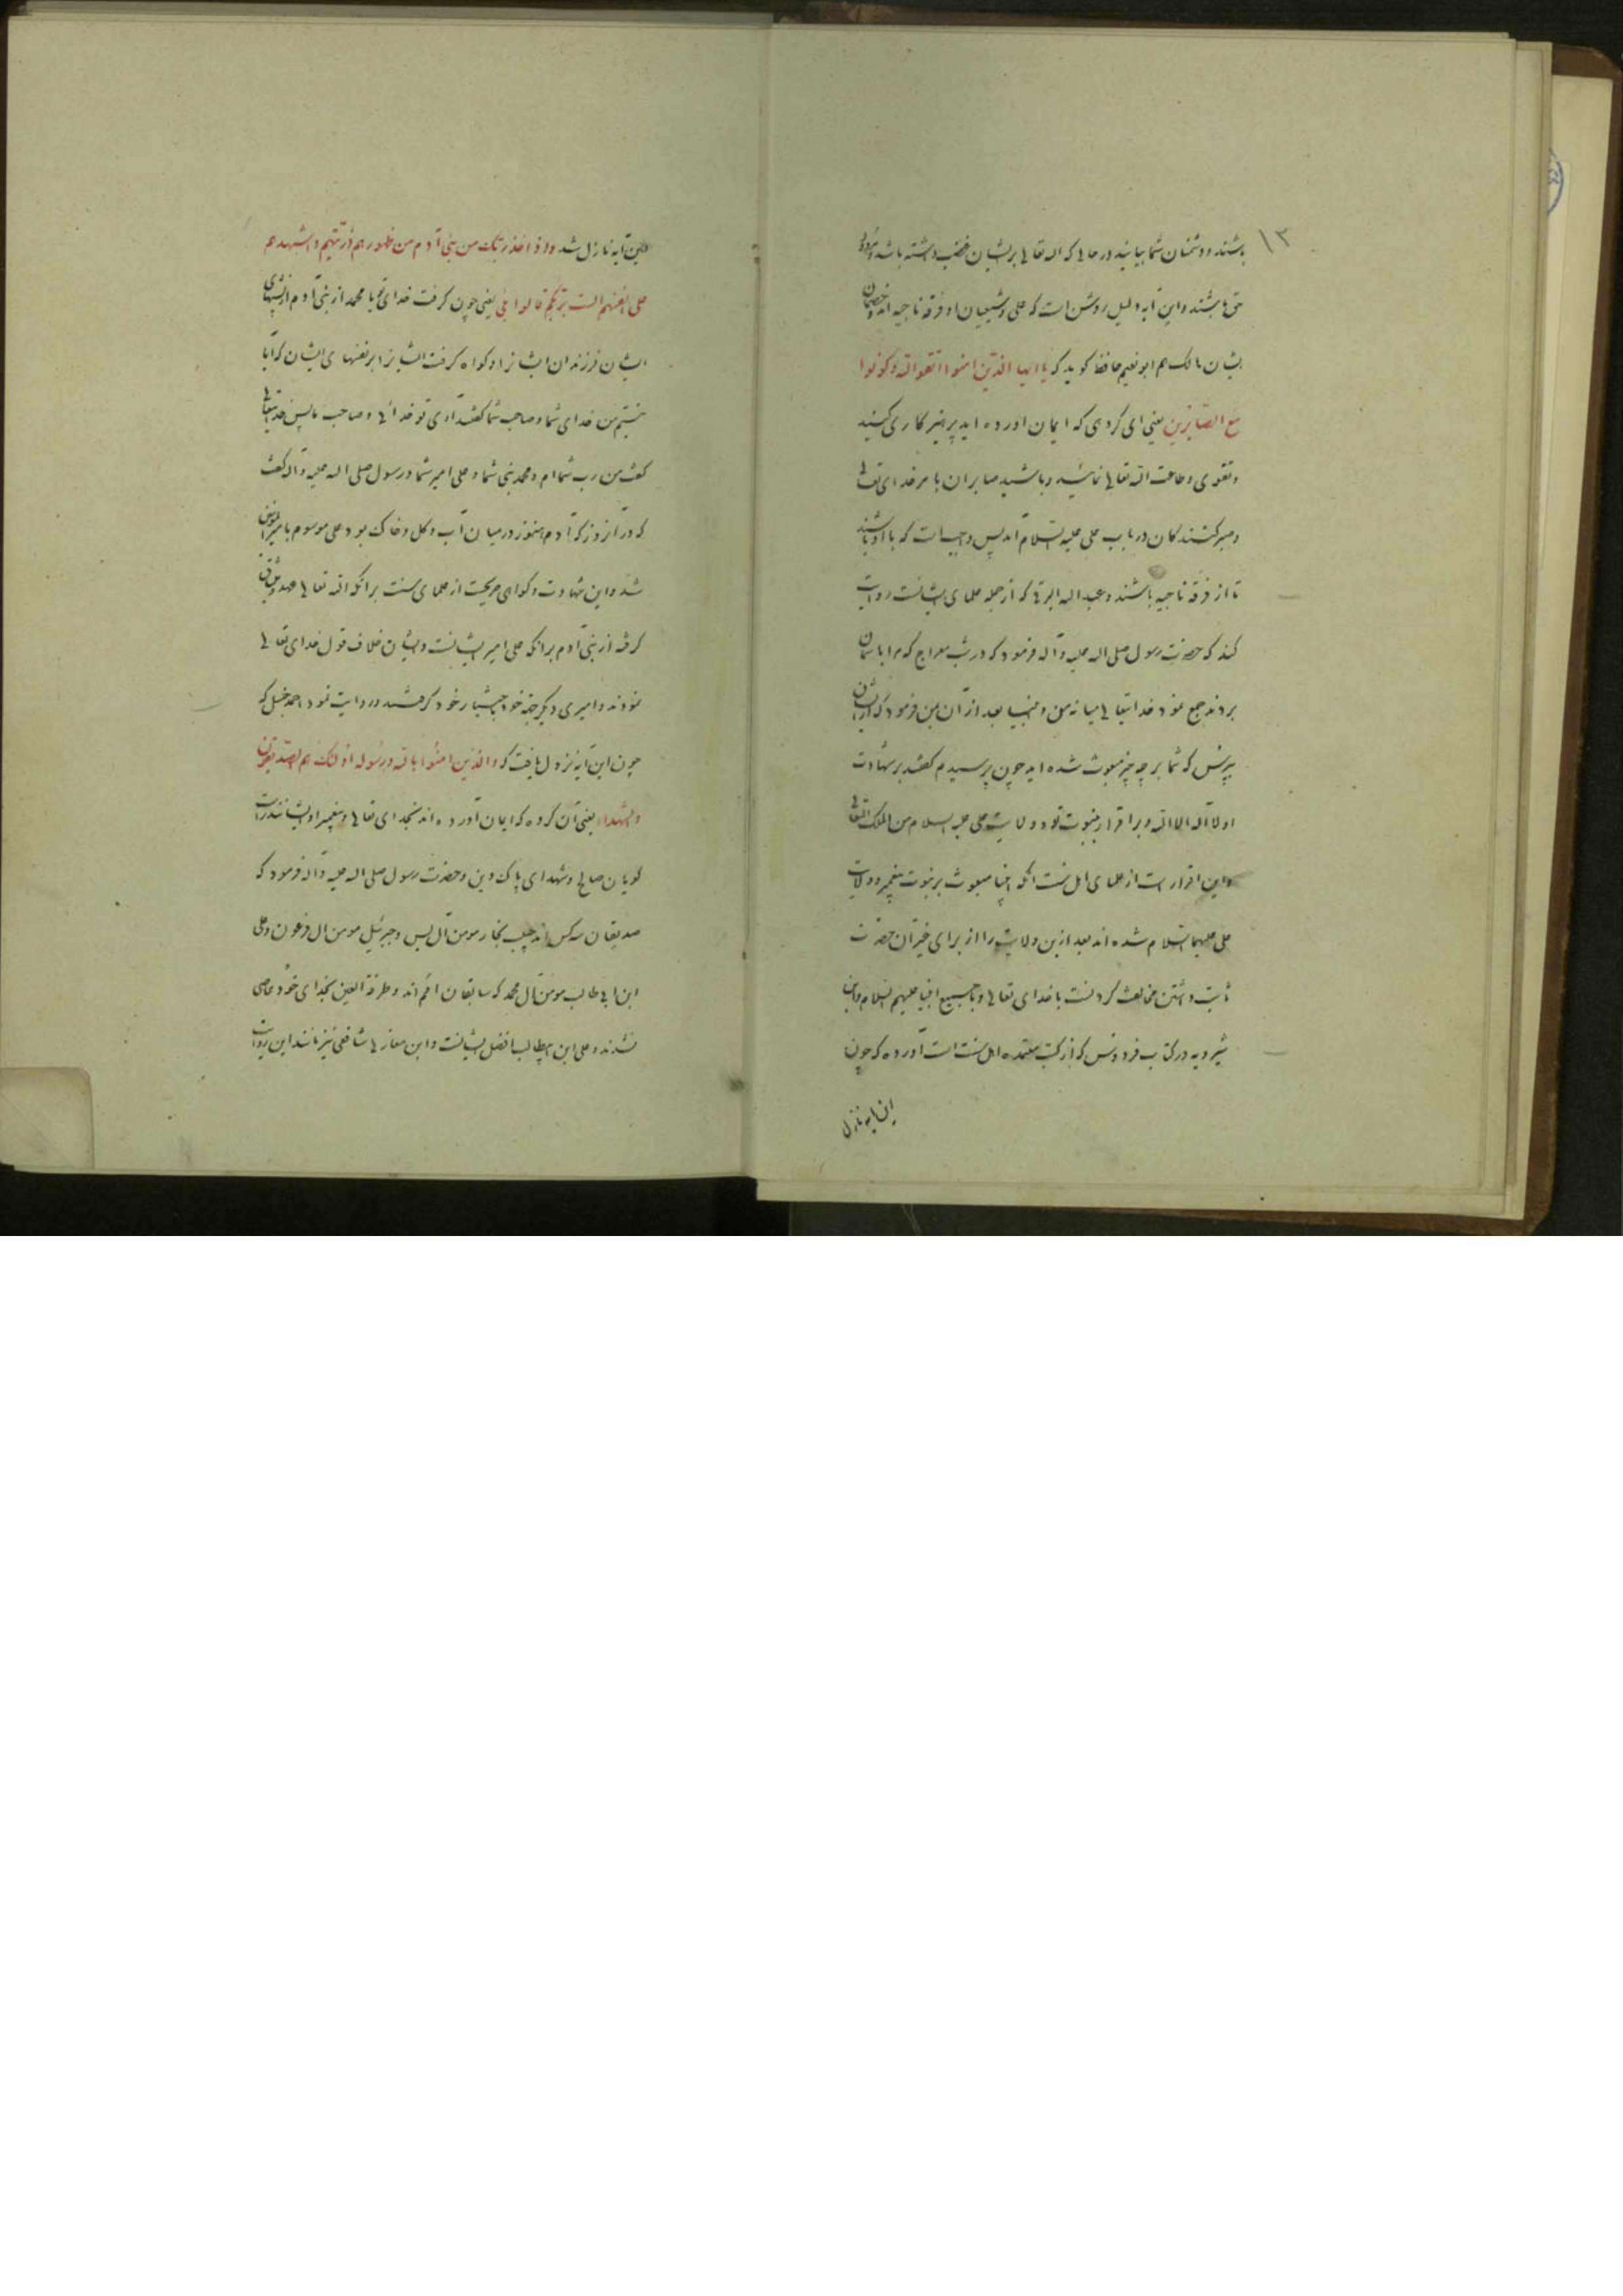 ۱۳
باشند و دشمنان شما بیایند در حالی که الله تعالی بر ایشان غضب داشته باشد
باشند و این آیه دلیل روشن است که علی و شیعیان او فرقه ناجیه اند و خصمان
ایشان هالک هم ابو نعیم حافظ کوید که یا ایها الذین امنوا اتقوا الله و کونوا
مع الصابرین یعنی ای کروهی که ایمان اورده اید پرهیز کاری کنید
و تقوی و طاعت الله تعالی نمائید و باشید صابران با مر خدای تعالی
و صبر کنندکان در باب علی علیه السلام آمد پس واجب است که با او باشند
تا از فرقه ناجیه باشند و عبد الله که از جمله علمای ایشانست روایت
کند که حضرت رسول صلی الله علیه و آله فرمود که در شب معراج که مرا باسمان
بردند جمع نمود خدایتعالی میانه من و انبیا بعد از آن بمن فرمود که از ایشان
بپرس که شما بر چه چیز مبعوث شده اید چون پرسیدم کفتند بر شهادت
او لا اله الا الله و بر اقرار بنبوت تو و ولایت علی علیه السلام من الملک المتعالی
و این اقرار است از علمای اهل سنت انکه انبیا مبعوث بر نبوت پیغمبر و ولایت
علی علیهما السلام شده اند بعد ازین ولایت را از برای غیر آن حضرت
ثابت داشتن مخالفت کردنست با خدای تعالی و با جمیع انبیا علیهم السلام و ابن
شیرویه در کتاب فردوس که از کتب معتمده اهل سنت است آورده که چون
این آیه نازل
این آیه نازل شد واذ اخذ ربک من بنی آدم من ظهورهم ذریتهم و اشهدهم
علی انفسهم الست بربکم قالوا بلی یعنی چون کرفت خدای تو یا محمد از بنی آدم از پشتهای
ایشان فرزندان ایشانرا و کواه کرفت ایشانرا بر نفسهای ایشان که آیا
نیستم من خدای شما و صاحب شما کفتند آری تو خدائی و صاحب ما پس خدایتعالی
کفت من رب شما ام و محمد نبی شما و علی امیر شما و رسول صلی الله علیه و آله کفت
که در آنروز که آدم هنوز در میان آب و کل و خاک بود علی موسوم بامیر المؤمنین
شد و این شهادت و کواهی صریحست از علمای سنت برانکه الله تعالی عهد و میثاق
کرفته از بنی آدم برانکه علی امیر ایشانست و ایشان خلاف قول خدای تعالی
نمودند و امیری دیکر جهة خود باختیار خود کرفتند و روایت نمود احمد حنبل که
چون این آیه نزول یافت که و الذین امنوا بالله و رسوله اولئک هم الصدیقون
و الشهداء یعنی آن کروه که ایمان آورده اند بخدای تعالی و پیغمبر او ایشانند راست
کویان صالح و شهدای پاک دین و حضرت رسول صلی الله علیه و آله فرمود که
صدیقان سه کس اند حبیب نجار مومن آل یس و جبرئیل مومن ال فرعون و علی
ابن ابی طالب مومن آل محمد که سابقان امم اند و طرفة العین بخدای خود عاصی
نشدند و علی ابن ابیطالب افضل ایشانست و ابن مغازلی شافعی نیز مانند این روایت